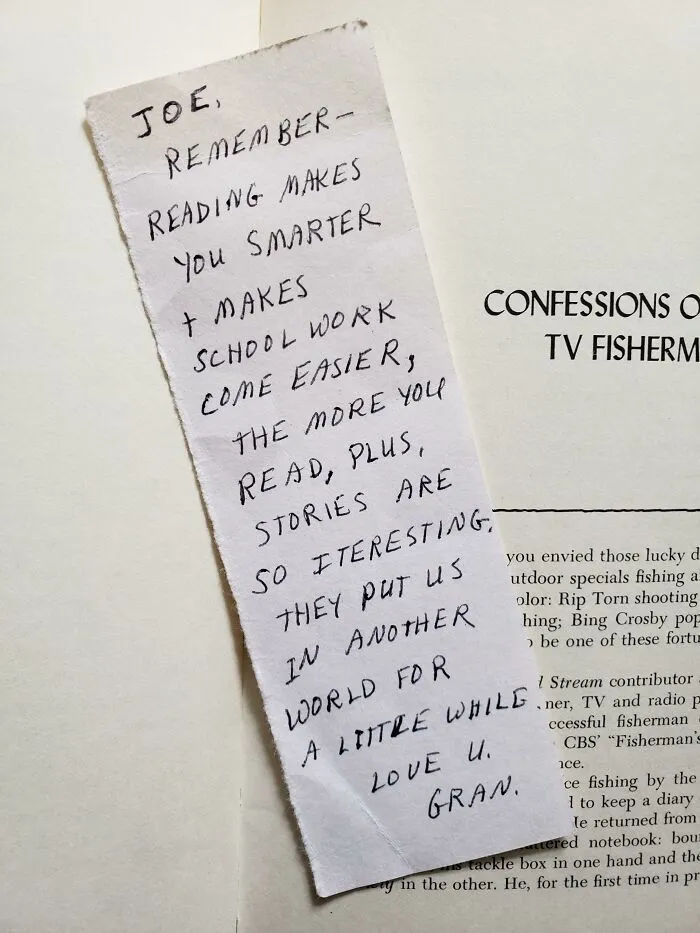 JOE,
REMEMBER-
READING MAKES
YOU SMARTER
+ MAKES
SCHOOL WORK
COME EASIER,
THE MORE YOU
READ, PLUS,
STORIES ARE
SO ITERESTING.
THEY PUT US
IN ANOTHER
WORLD FOR
A LITTLE WHILE
LOVE U.
GRAN.
CONFESSIONS O
TV FISHERM
you envied those lucky d
utdoor specials fishing a
olor: Rip Torn shooting
hing; Bing Crosby pop
be one of these fortu
Stream contributor
ner, TV and radio p
ccessful fisherman
CBS' "Fisherman's
nce.
ce fishing by the
to keep a diary
He returned from
ttered notebook: bou
tackle box in one hand and the
in the other. He, for the first time in pr